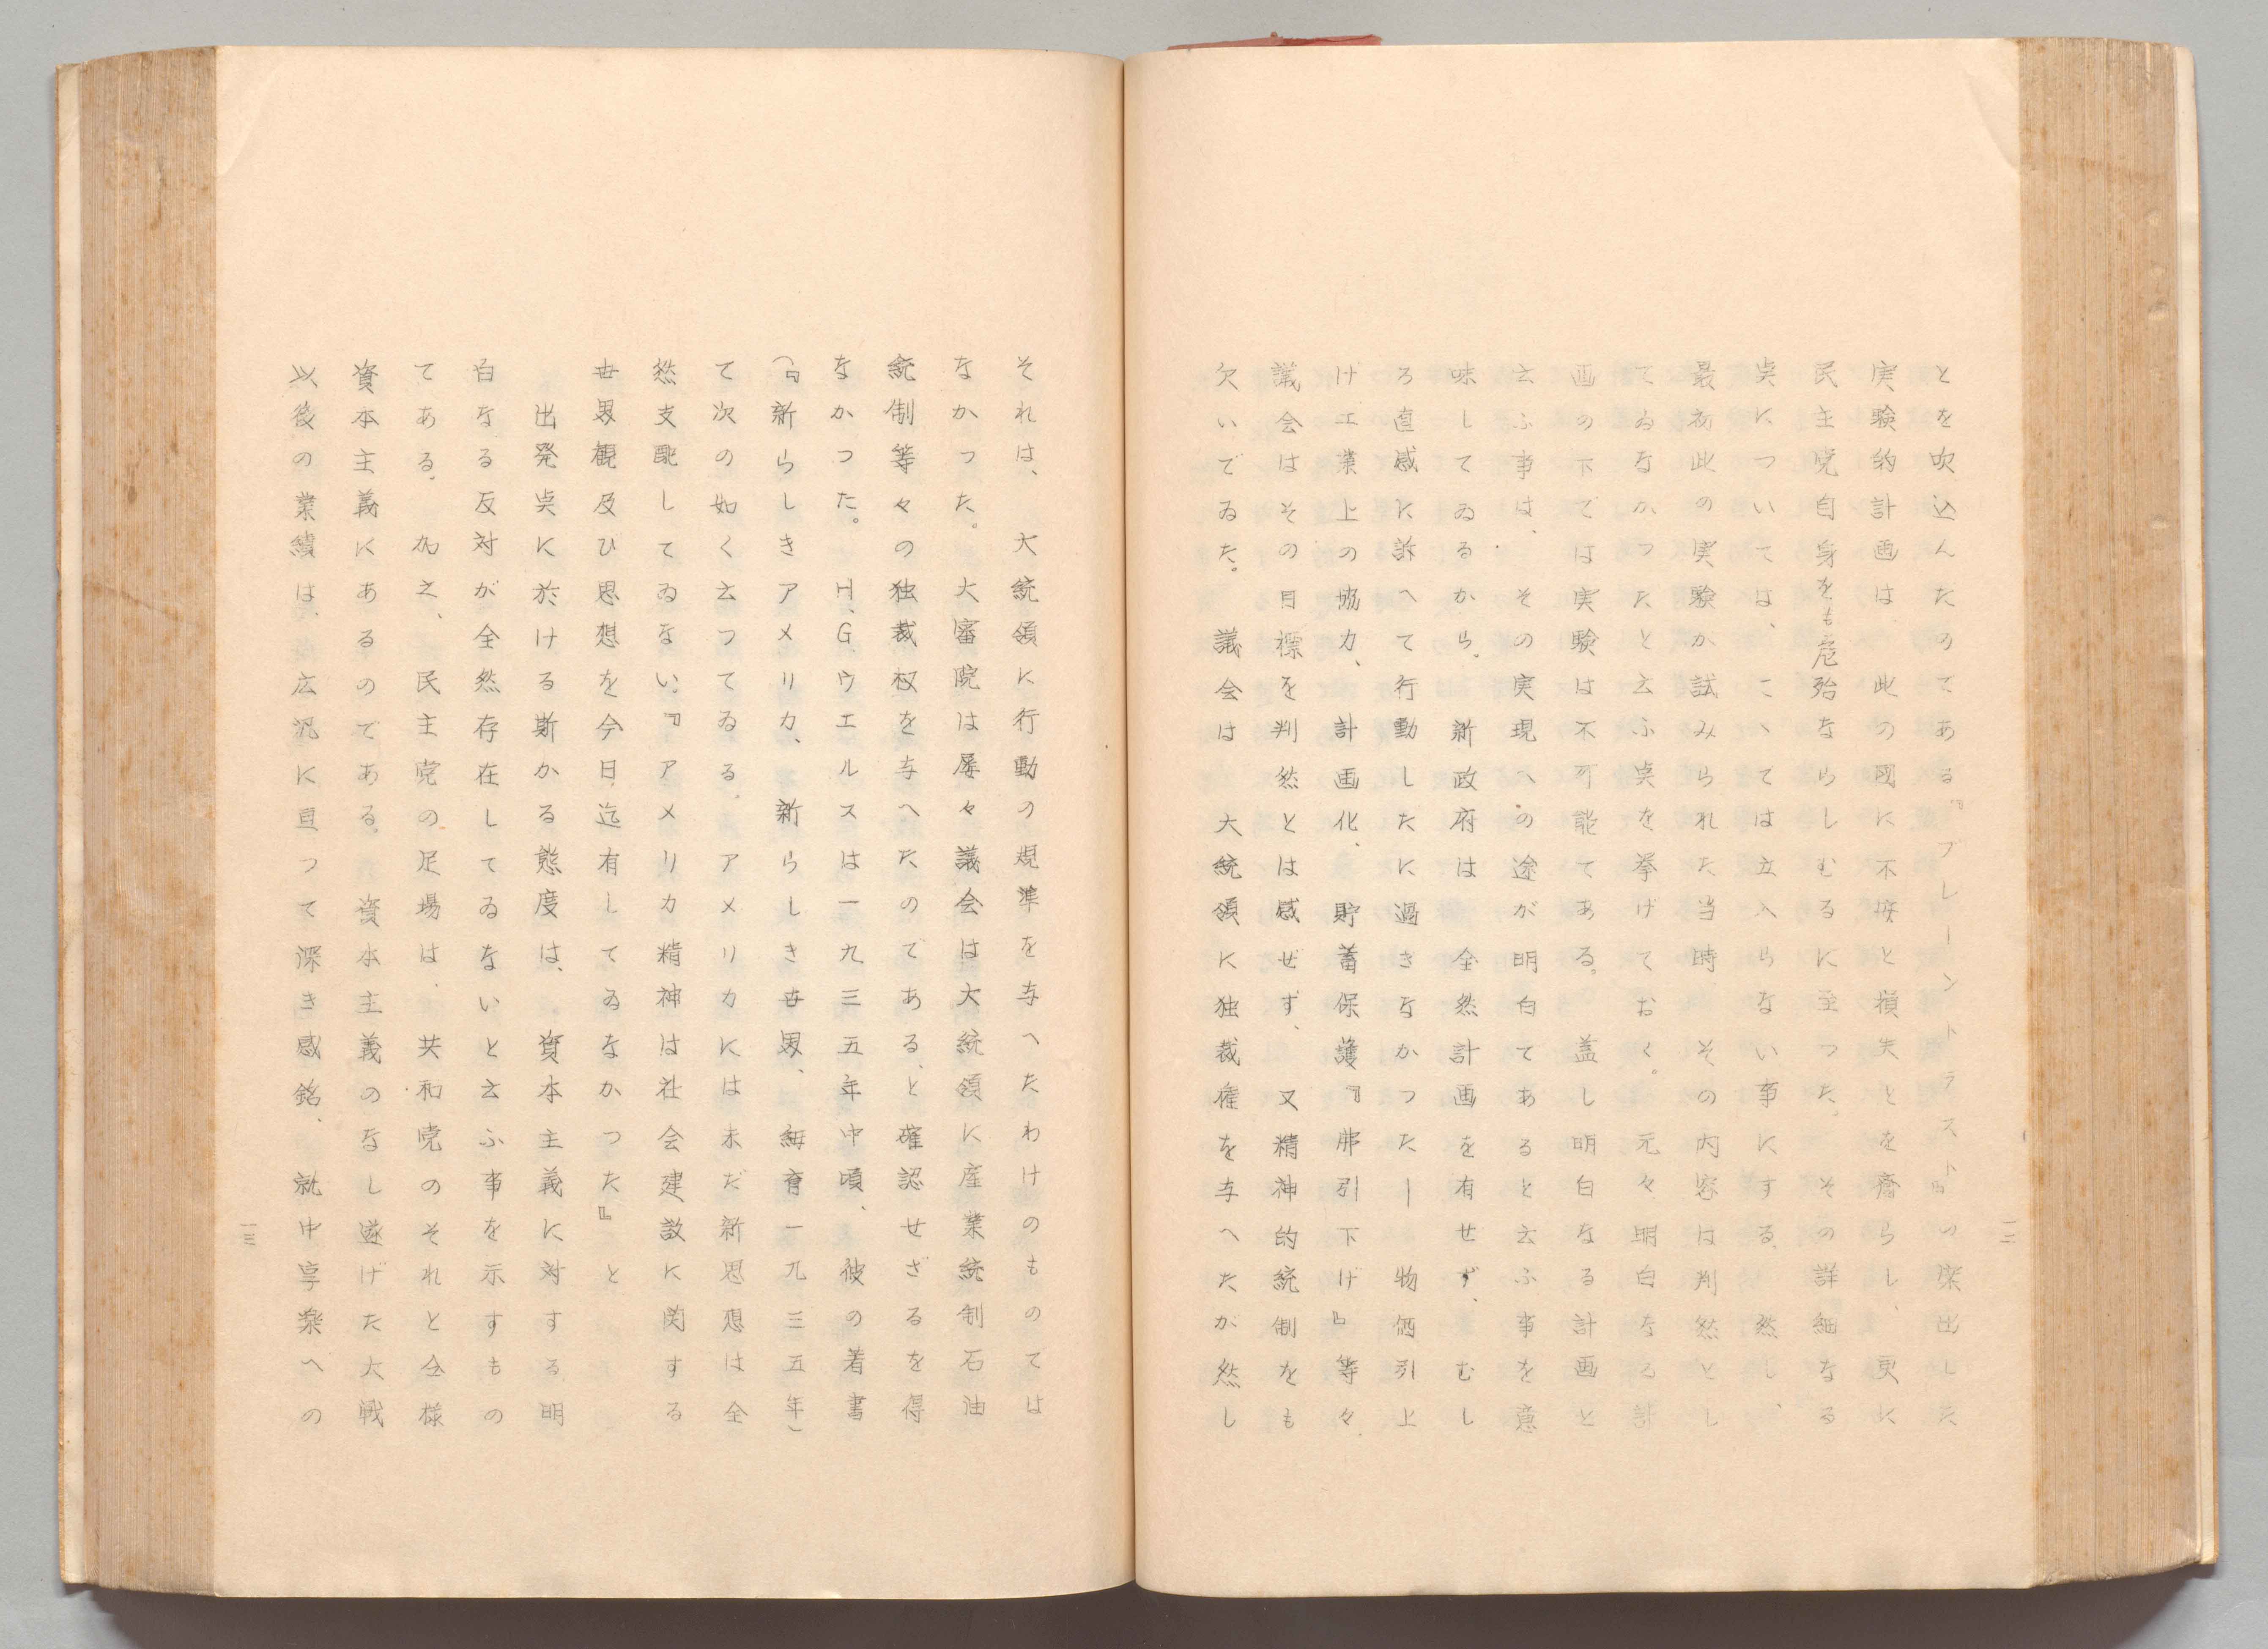 とを吹込んたのてある『ブレーントラスト』の案出した
実験的計画は　此の國に不安と損失とを齎らし、更に
民主党自身をも危殆ならしむるに至つた。その詳細なる
点については、こゝては立入らない事にする　然し、
最初此の実験か試みられた当時　その内容は判然とし
てゐなかつたと云ふ点を挙げておく。元々明白なる計
画の下では実験は不可能てある。蓋し明白なる計画と
云ふ事は、その実現への途が明白てあると云ふ事を意
味してゐるから。新政府は全然計画を有せず、むし
ろ直感に訴へて行動したに過きなかつた―物価引上
け工業上の協力、計画化、貯蓄保護『弗引下げ』等々
議会はその目標を判然とは感ぜず、又精神的統制をも
欠いでゐた。議会は　大統領に独裁権を与へたが然し
一二
それは、大統領に行動の規準を与へたわけのものては
なかつた。大審院は屡々議会は大統領に産業統制石油
統制等々の独裁权を与へたのである、と確認せざるを得
なかつた。H、G、ウエルスは一九三五年中頃、彼の著書
（『新らしきアメリカ、新らしき世界、紐育一九三五年）
て次の如く云つてゐる。アメリカには未だ新思想は全
然支配してゐない。『アメリカ精神は社会建設に関する
世界観及ひ思想を今日迄有してゐなかつた』と
出発点に於ける斯かる態度は、資本主義に対する明
白なる反対が全然存在してゐないと云ふ事を示すもの
てある。加之、民主党の足場は、共和党のそれと仝様
資本主義にあるのである。資本主義のなし遂げた大戦
以後の業績は、広汎に亘つて深き感銘、就中享楽への
一三